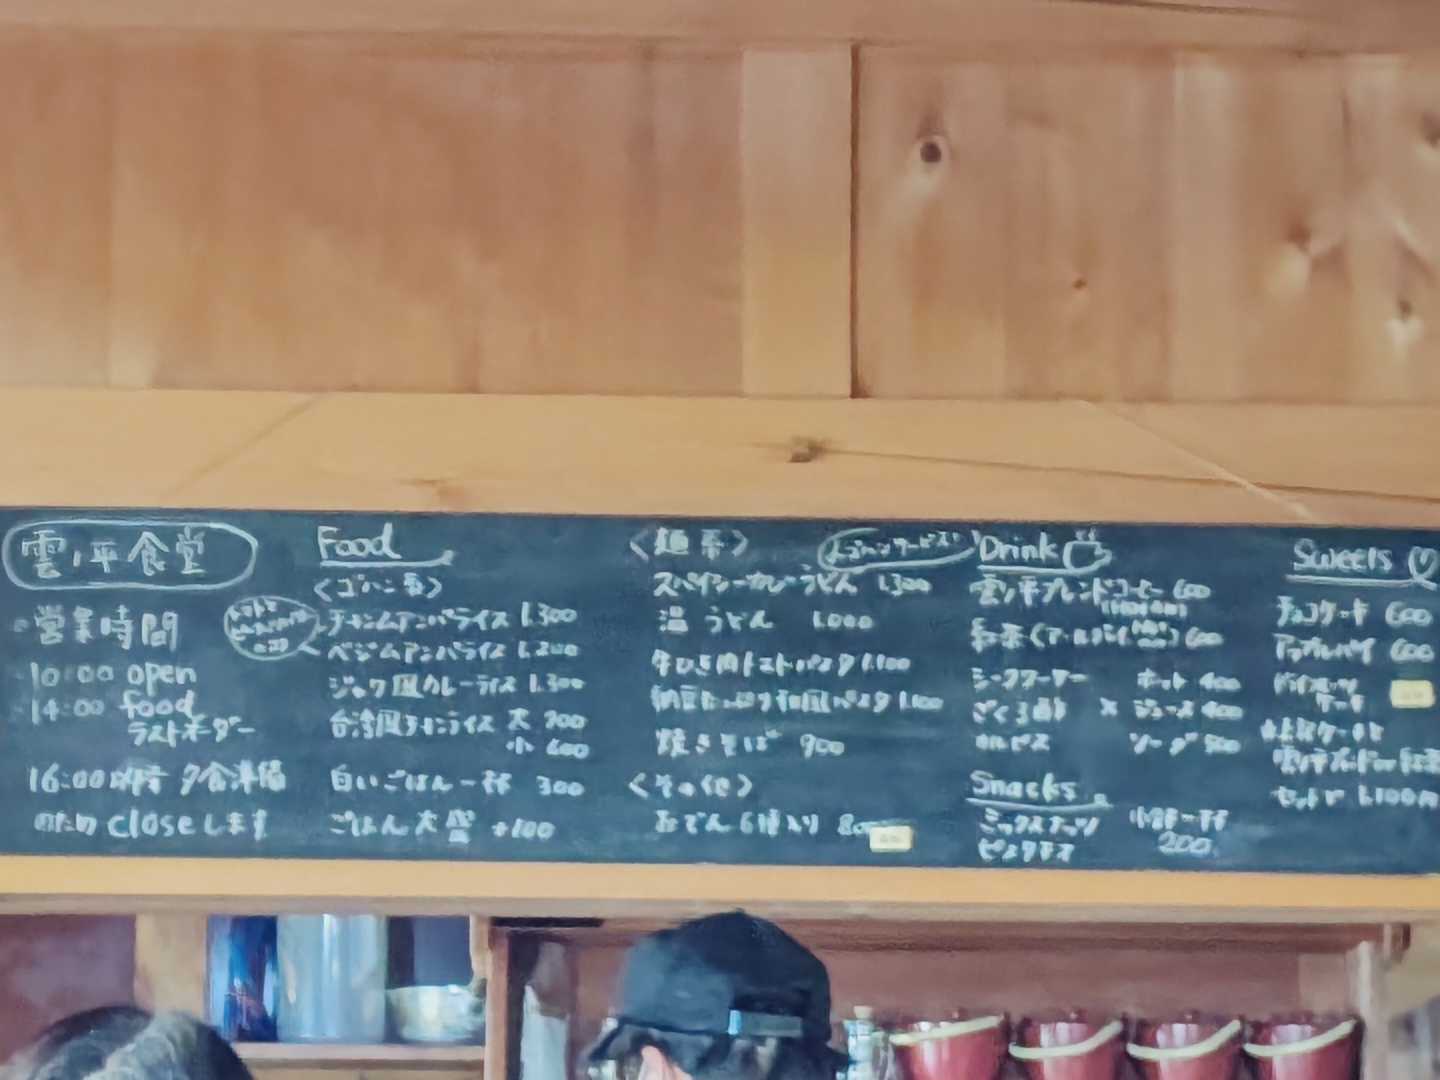 雲ノ平食堂
営業時間
10:00 open
14:00 food
ラストオーダー
16:00以降 夕食準備
のため closeします
Food
<ゴハン系>
チキンムアンバライス 1,300
ベジムアンバライス 1,200
ジャワ風カレーライス 1,300
台湾風チキンライス 大 900
小 600
白いごはん一杯 300
ごはん大盛 +100
<麺系>
スパイシーカレーうどん 1,300
温うどん 1,000
牛ひき肉トマトパスタ 1,100
納豆たっぷり和風パスタ 1,100
焼きそば 900
<その他>
おでん6種入り
Drink
雲ノ平ブレンドコーヒー 600
紅茶(アールグレイ) 600
シークワーサー ホット 400
ざくろ酢 × ジュース 400
カルピス ソーダ 500
Snacks
ミックスナッツ 小鉢一杯
ピスタチオ 200
Sweets
チョコケーキ 600
アップルパイ 600
ケーキ
セットで 1,100円